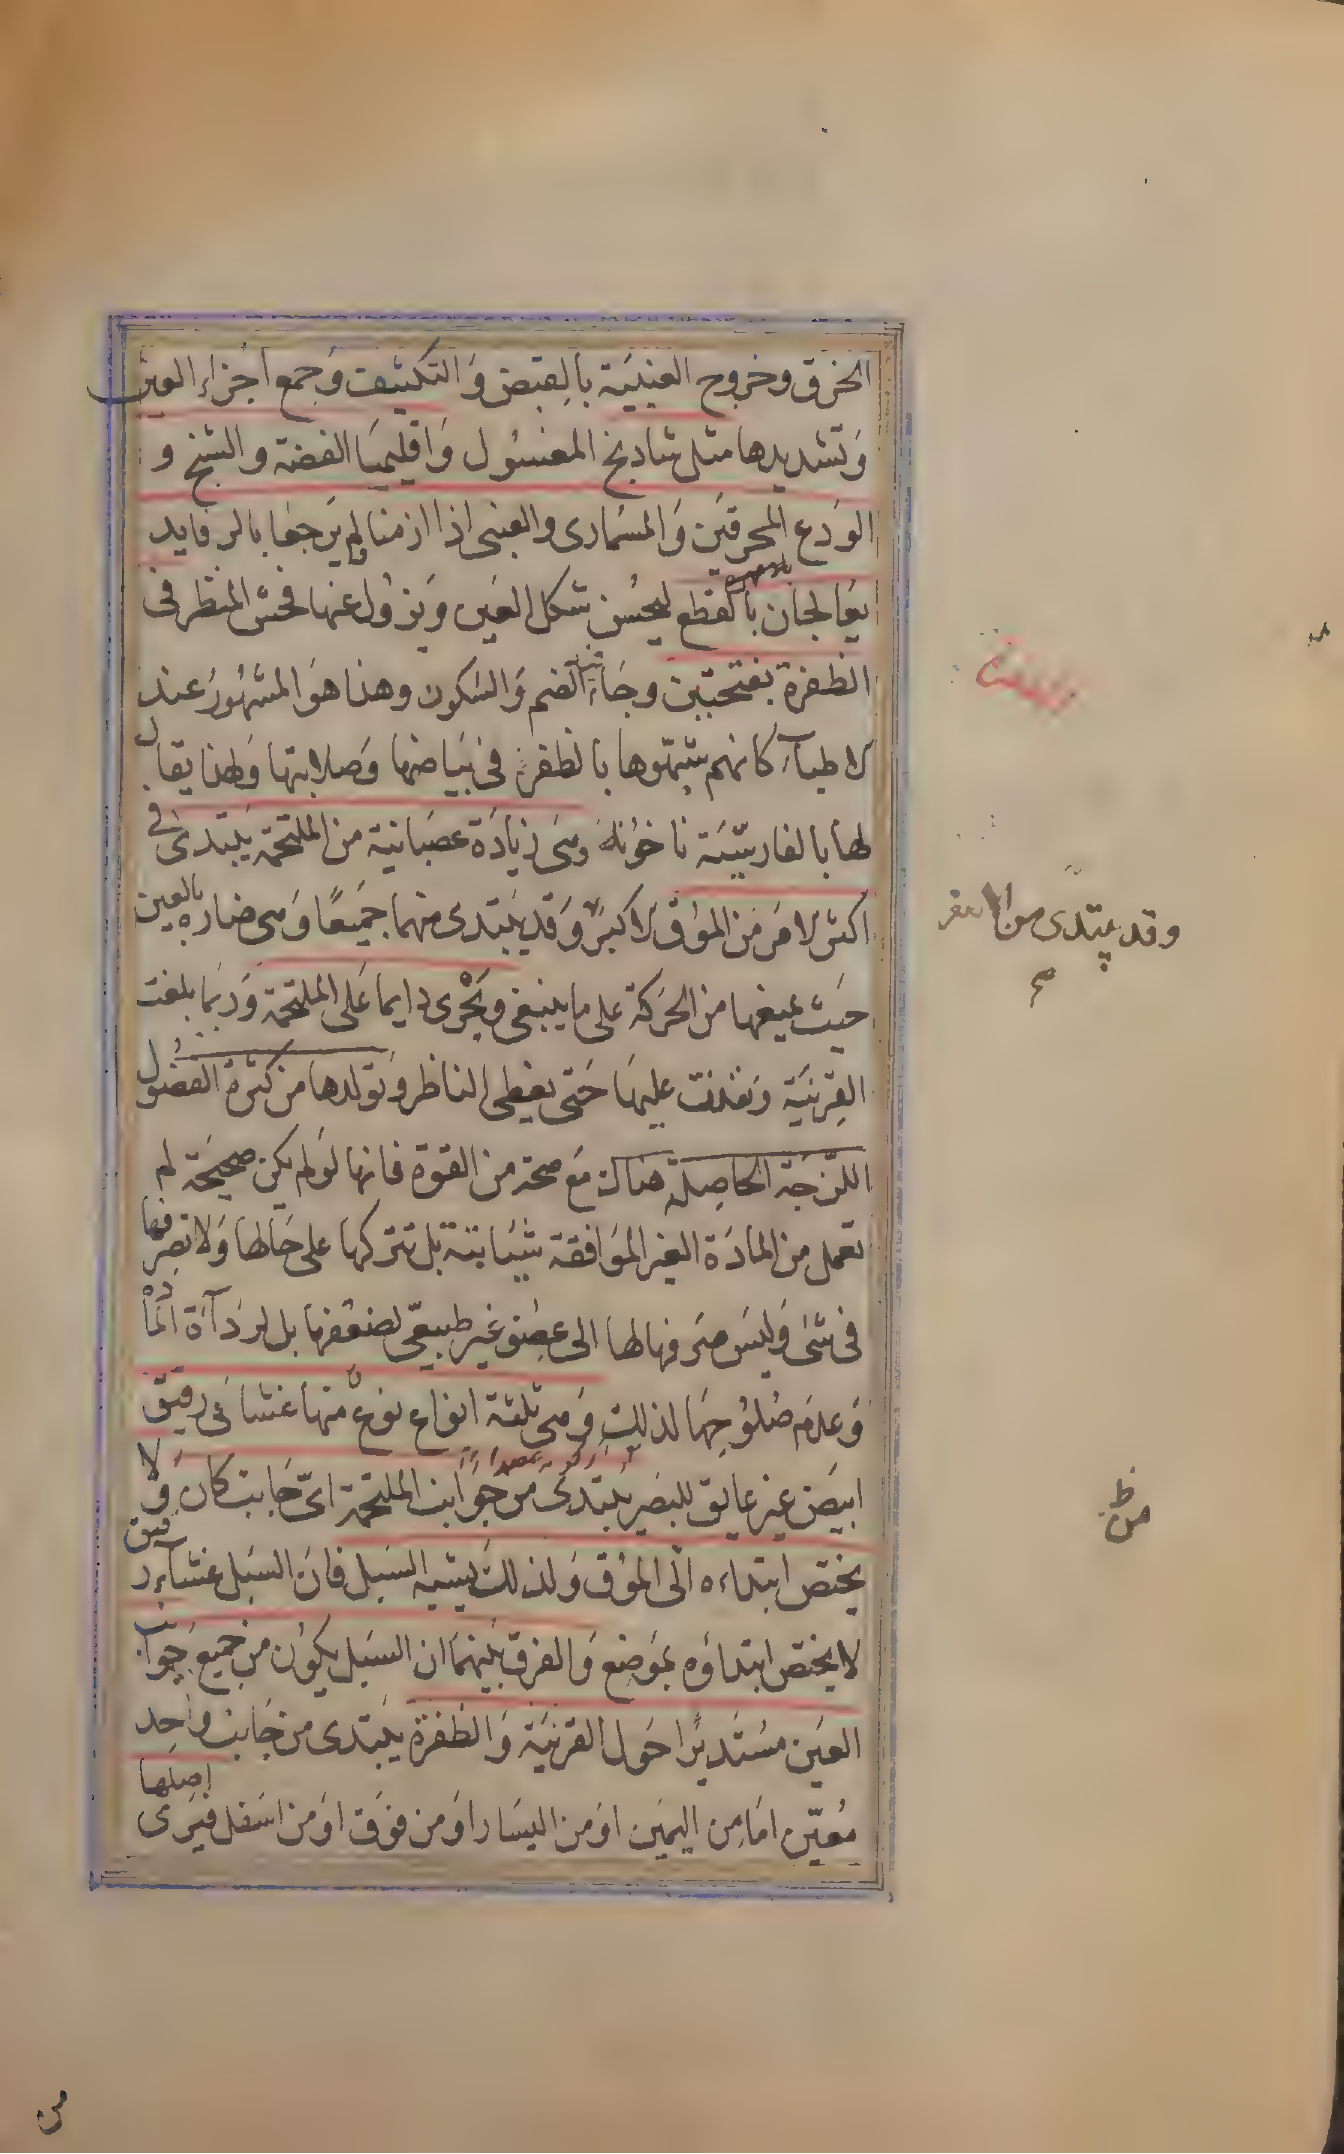 الخرق وخروج العنبية بالقبض و التكثيف و جمع اجزاء العين
و تشديدها مثل شاذنج المغسول و اقليميا الفضة و الشنج و
الودع المحرقين و المسمارى والعنبى اذا ازمنا لم يرجعا بالرفايد
يعالجان بالقطع ليحسن شكل العين و يزول عنها فحش المنظر فى
الظفرة بفتحتين و جاء الضم و السكون وهذا هو المشهور عند
الاطباء كانهم شبهوها بالظفر فى بياضها و صلابتها و لهذا يقال
لها بالفارسية ناخونه وهى زيادة عصبانية من الملتحمة يبتدى فى
اكثر الامر من الموق الاكبر و قد يبتدى منهما جميعا و هى ضاره بالعين
حيث يمنعها من الحركة على ما ينبغى ويجرى دايما على الملتحمة و ربما بلغت
القرنية و نفذت عليها حتى يغطى الناظر و تولدها من كثرة الفضول
اللزجة الحاصلة هناك مع صحة من القوة فانها لو لم يكن صحيحة لم
تعمل من المادة الغير الموافقة شيئا بتة بل تتركها على حالها ولا تصرفها
فى شئ وليس صرفها لها الى عضو غير طبيعى لضعفها بل لرداءة المادة
و عدم صلوحها لذلك و هى ثلثة انواع نوع منها غشائى رقيق
ابيض غير عايق للبصر يبتدى من جوانب الملتحمة اى جانب كان ولا
يختص ابتداءه الى الموق ولذلك يشبه السبل فان السبل غشاء رقيق
لا يختص ابتداؤه بموضع و الفرق بينهما ان السبل يكون من جميع جوانب
العين مستديرا حول القرنية و الظفرة يبتدى من جانب واحد
معين اما من اليمين او من اليسار او من فوق او من اسفل فيرى اصلها
وقد يبتدى من الاصغر
صح
من ظ